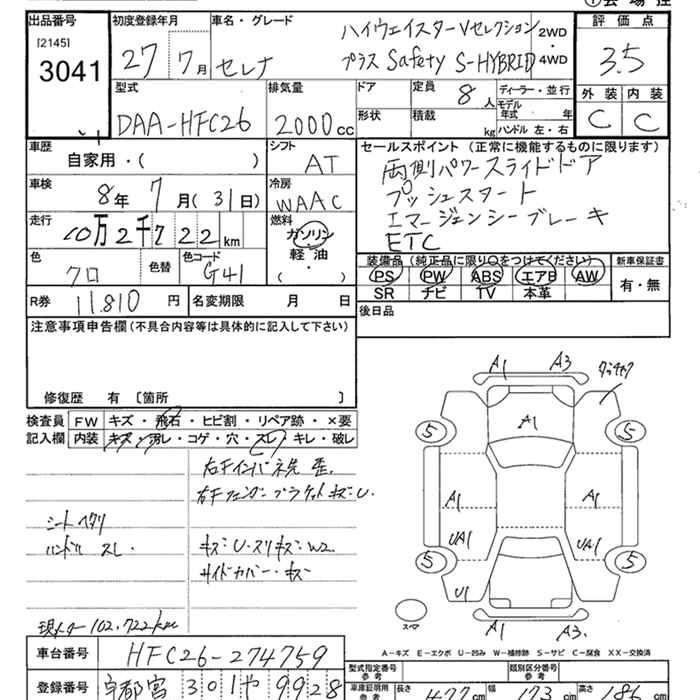 出品番号
[2145]
3041
初度登録年月
27 7月
車名・グレード
セレナ
ハイウェイスターVセレクション
プラス Safety S-HYBRID
2WD
4WD
評価点
3.5
外装 内装
C C
型式
DAA-HFC26
排気量
2000cc
ドア
形状
定員
8人
積載
kg
ディーラー・並行
モデル年式 年
ハンドル 左・右
車歴
自家用・( )
シフト
AT
セールスポイント (正常に機能するものに限ります)
両側パワースライドドア
プッシュスタート
エマージェンシーブレーキ
ETC
車検
8年 7月(31日)
冷房
WAAC
走行
10万2千722km
燃料
ガソリン
軽油
・
( )
色
クロ
色替
色コード
G41
装備品 (純正品に限り○をつけてください)
PS PW ABS エアB AW
SR ナビ TV 本革
新車保証書
有・無
R券
11.810円
名変期限 月 日
後日品
注意事項申告欄 (不具合内容等は具体的に記入して下さい)
修復歴 有 〔箇所 〕
検査員
記入欄
FW キズ・飛石・ヒビ割・リペア跡・×要
内装 キズ・汚レ・コゲ・穴・スレ・キレ・破レ
右Fインパネ先 歪.
右FフェンダーブラケットキズU.
シートヘタリ
ハンドル スレ.
キズ・U・スリキズ・W2
サイドカバー・キズ
現メーター102.722km
A1 A3 タッチアップ
A1
5 5
A1 A1
UA1 UA1
5 5
U1
A1 A3.
スペア
A-キズ E-エクボ U-凹み W-補修跡 S-サビ C-腐食 XX-交換済
車台番号
HFC26-274759
登録番号
宇都宮 301 や 9928
型式指定番号
参考
類別区分番号
参考
車庫証明用
参考
長さ 477cm 幅 173cm 高さ 186cm